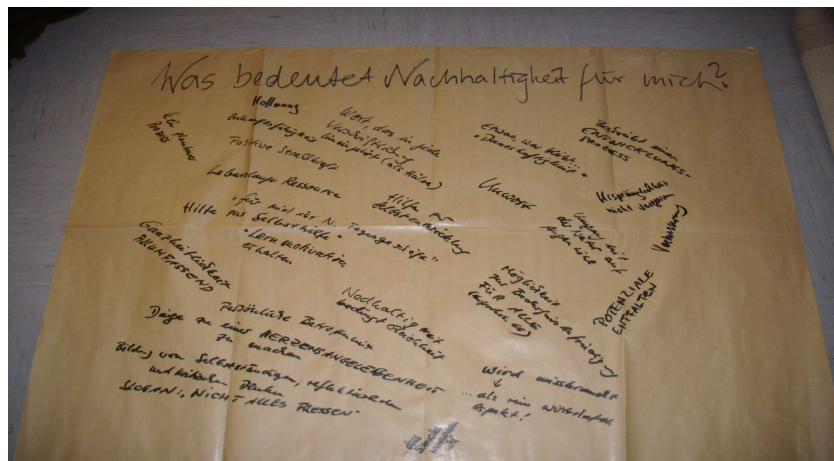 Was bedeutet Nachhaltigkeit für mich?
Hoffnung
Zukunftsfähigkeit
Positive Strahlkraft
Lebenslange Ressource
Wort, das in jede
Etwas, was bleibt...
"Dauerhaftigkeit"
Beschreibt einen
ENTWICKLUNGS-
PROZESS
Umwelt
Ursprünglichkeit
nicht vergessen
Verbesserung
Hilfe zur
Selbstentwicklung
"für mich ist N.
Hilfe zur Selbsthilfe"
Lernmotivation
erhalten
Ganzheitlichkeit
ALLUMFASSEND
Umgang mit
der Natur auf
Möglichkeit
zur Bedürfnisbefriedigung
FÜR ALLE
POTENZIALE
ENTFALTEN
Nachhaltigkeit
bedingt
Persönliche Betroffenheit
Dinge zu einer HERZENSANGELEGENHEIT
zu machen
Bildung von Selbstständigen, reflektierten
und kritischen Denken
SLOGAN: "NICHT ALLES FRESSEN"
wird missbraucht
... als rein wirtschaftl.
Aspekt!